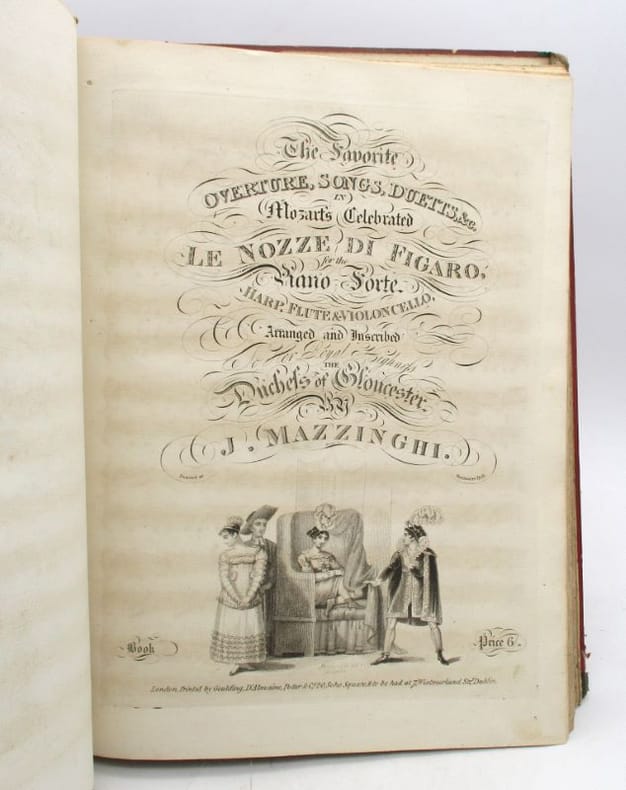 The Favorite
OVERTURE, SONGS, DUETTS, &c.
IN
Mozart's Celebrated
LE NOZZE DI FIGARO,
for the
Piano Forte.
HARP, FLUTE & VIOLONCELLO,
Arranged and Inscribed
To Her Royal Highness
THE
Duchess of Gloucester.
BY
J. MAZZINGHI.
Book
Price 6/.
London, Printed by Goulding, D'Almaine, Potter & Co. 20, Soho Square, & to be had at 7, Westmorland Str. Dublin.